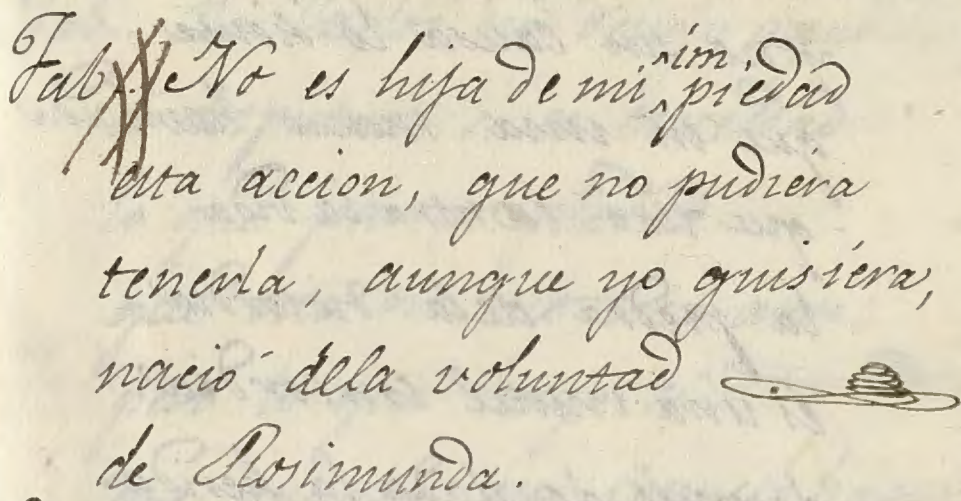 Fab. No es hija de mi ^im^ piedad
esta accion, que no pudiera
tenerla, aunque yo quisiera,
nació dela voluntad
de Rosimunda.